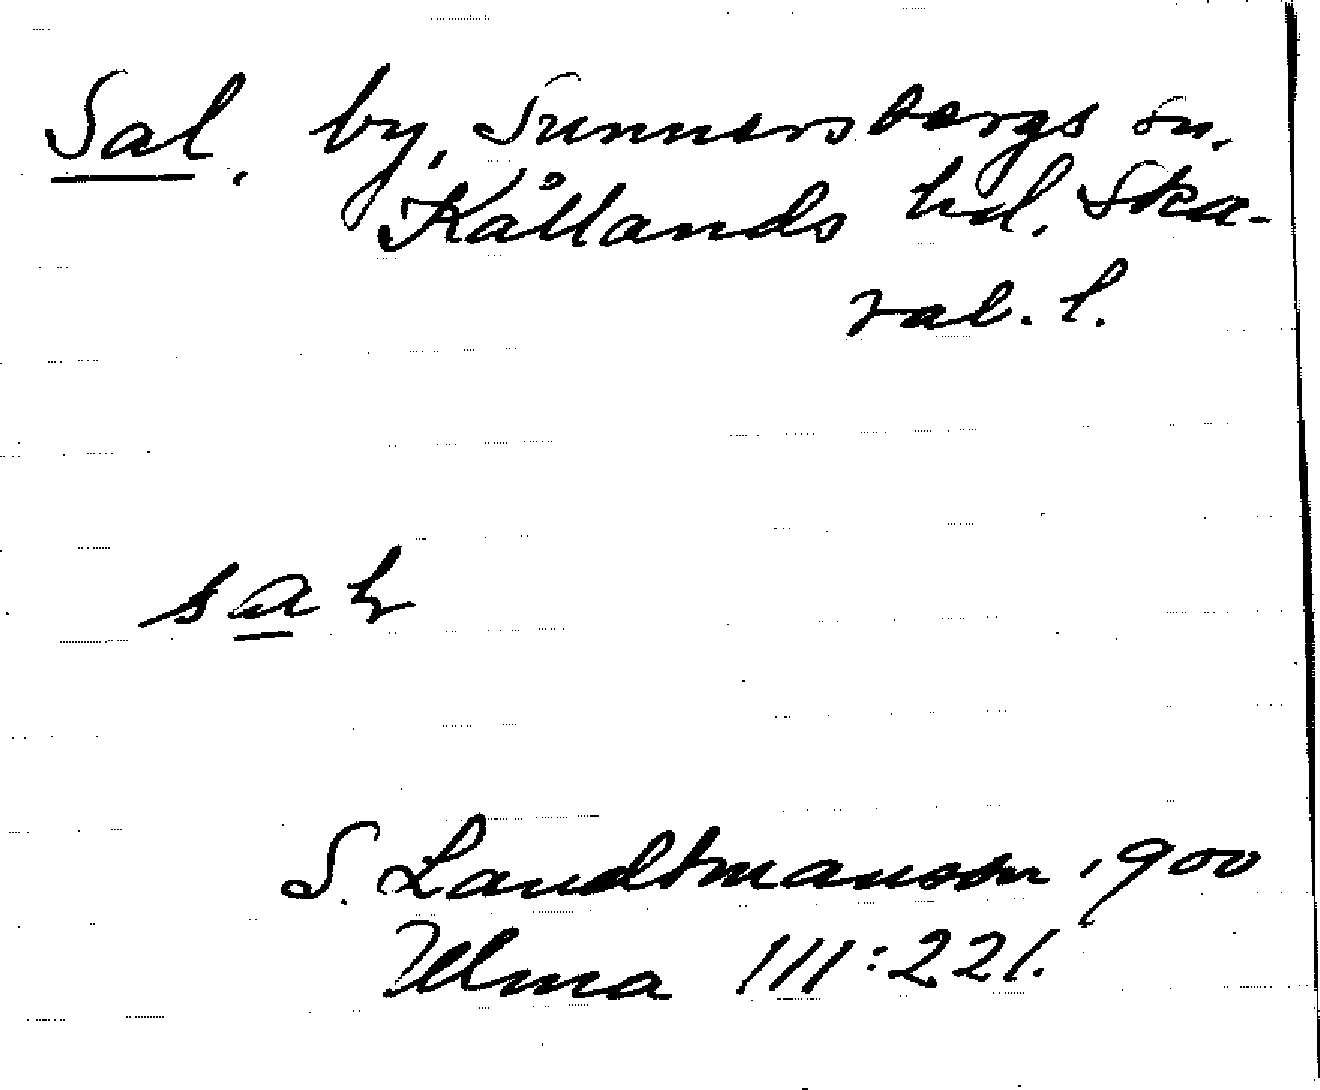 Sal, by, Sunnersbergs sn,
Kållands hd, Ska-
rab. l.
sal
S. Landtmanson 1900
Ulma 111:221.